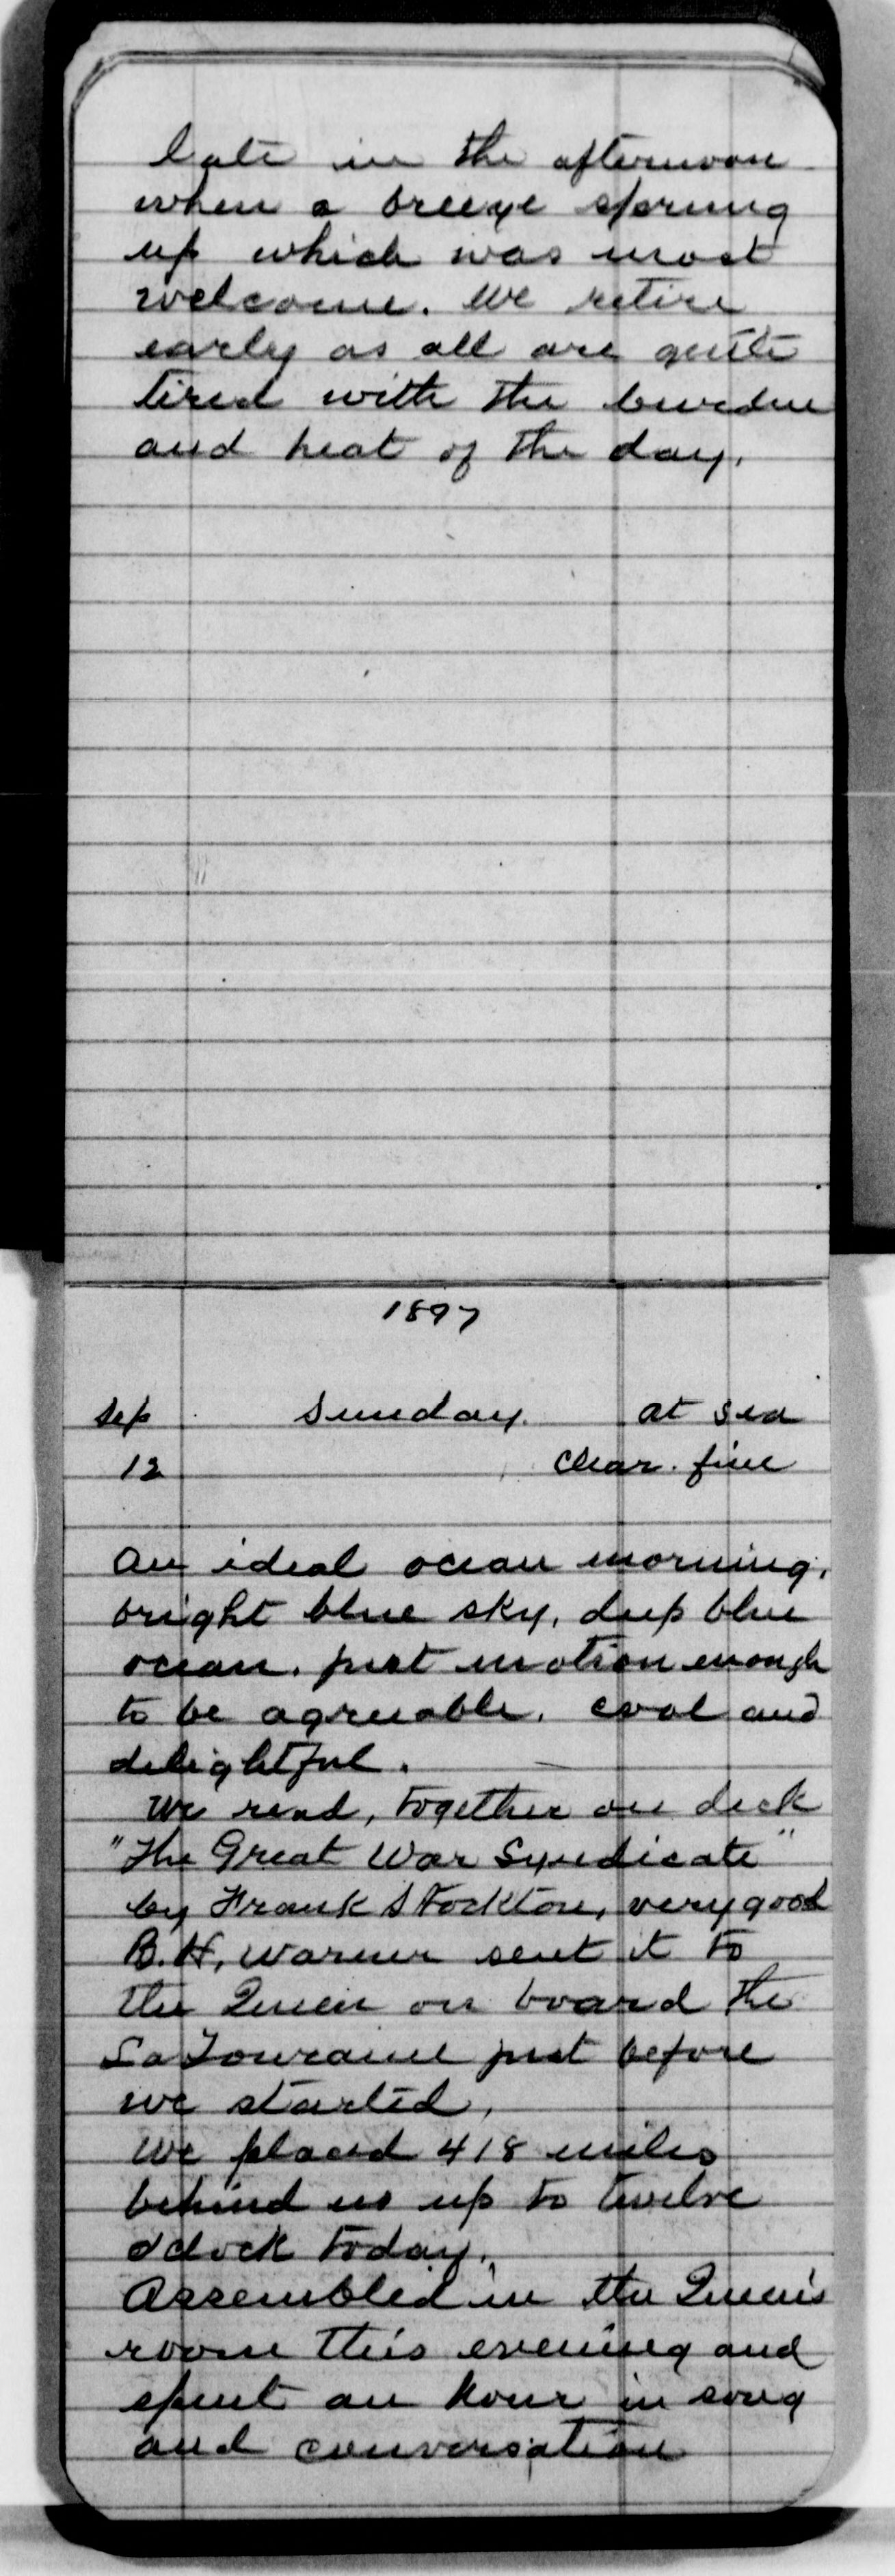 late in the afternoon
when a breeze sprung
up which was most
welcome. We retire
early as all are quite
tired with the burden
and heat of the day.
1897
Sep Sunday. at sea
12 Clear. fine
An ideal ocean morning,
bright blue sky, deep blue
ocean, just motion enough
to be agreeable, cool and
delightful.
We read, together on deck
"The Great War Syndicate"
by Frank Stockton, very good
B.H. Warner sent it to
the Queen on board the
La Touraine just before
we started,
We placed 418 miles
behind us up to twelve
o'clock today.
Assembled in the Queen's
room this evening and
spent an hour in song
and conversation